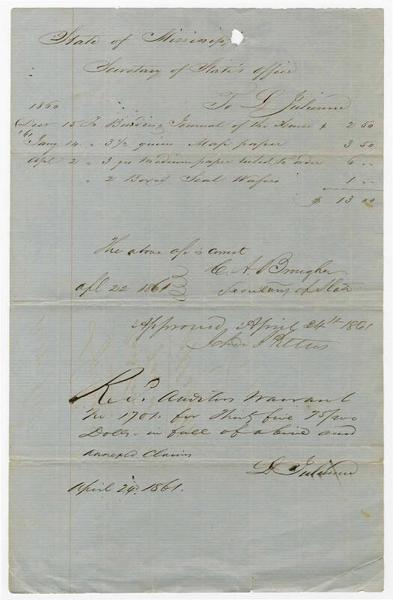 State of Mississippi
Secretary of State's office
1860 To L Julienne
Decr 15 To Binding Journal of the House $ 2 50
'61
Jany 14 " 3½ quires Map paper 3 50
Apl 2 " 3 qrs Medium paper ruled to order 6 "
" 2 Boxes Seal Wafers 1 "
$ 13 00
The above a/c is correct
C. A. Brougher
apl 22 1861 Secretary of State
Approved, April 24th 1861
John J Pettus
Recd Auditors Warrant
No 1701. for Thirty five 75/100
Dolls. in full of above and
annexed Claims
L Julienne
April 29. 1861.